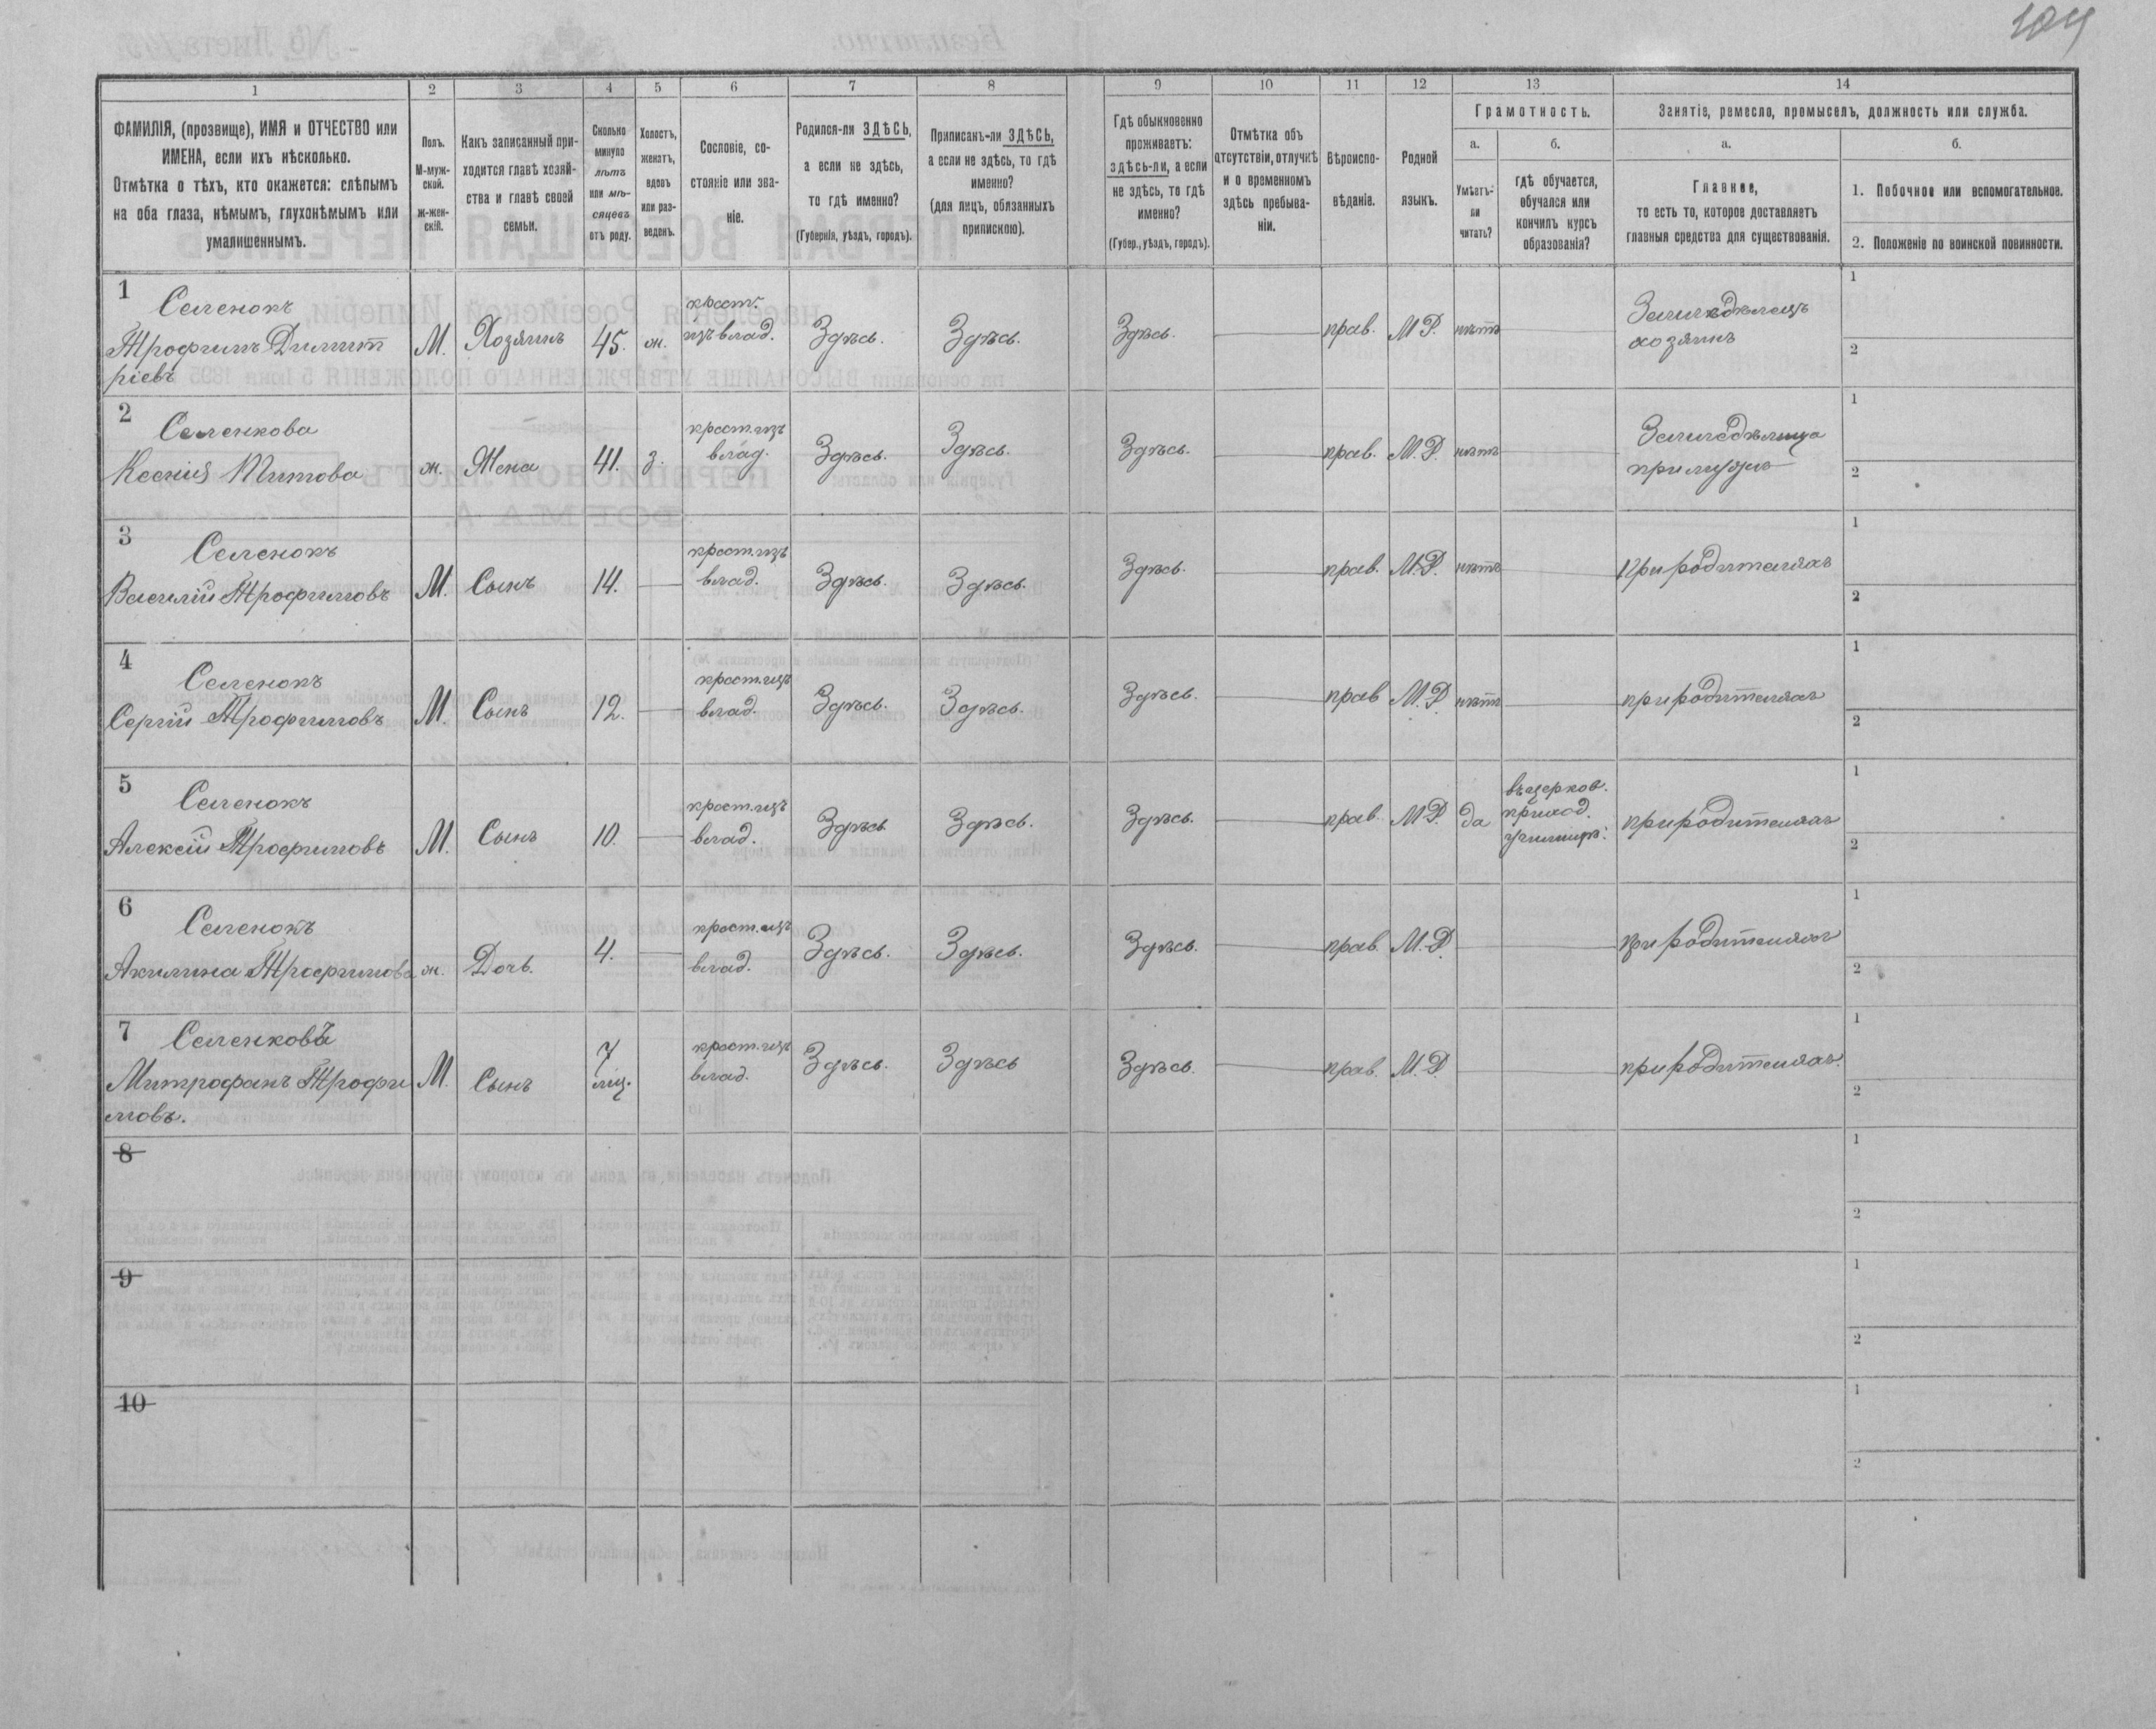 104
1 2 3 4 5 6 7 8 9 10 11 12 13 14
ФАМИЛІЯ, (прозвище), ИМЯ и ОТЧЕСТВО или
ИМЕНА, если ихъ нѣсколько.
Отмѣтка о тѣхъ, кто окажется: слѣпымъ
на оба глаза, нѣмымъ, глухонѣмымъ или
умалишеннымъ.
Полъ.
М-муж-
ской.
ж-жен-
скій.
Какъ записанный при-
ходится главѣ хозяй-
ства и главѣ своей
семьи.
Сколько
минуло
лѣтъ
или мѣ-
сяцевъ
отъ роду.
Холостъ,
женатъ,
вдовъ
или раз-
веденъ.
Сословіе, со-
стояніе или зва-
ніе.
Родился-ли ЗДѢСЬ,
а если не здѣсь,
то гдѣ именно?
(Губернія, уѣздъ, городъ).
Приписанъ-ли ЗДѢСЬ,
а если не здѣсь, то гдѣ
именно?
(для лицъ, обязанныхъ
припискою).
Гдѣ обыкновенно
проживаетъ:
здѣсь-ли, а если
не здѣсь, то гдѣ
именно?
(Губер., уѣздъ, городъ).
Отмѣтка объ
отсутствіи, отлучкѣ
и о временномъ
здѣсь пребыва-
ніи.
Вѣроиспо-
вѣданіе.
Родной
языкъ.
Грамотность.
а.
Умѣетъ-
ли
читать?
б.
гдѣ обучается,
обучался или
кончилъ курсъ
образованія?
Занятіе, ремесло, промыселъ, должность или служба.
а.
Главное,
то есть то, которое доставляетъ
главныя средства для существованія.
б.
1. Побочное или вспомогательное.
2. Положеніе по воинской повинности.
1
Селенокъ
Трофимъ Димит
ріевъ
М.
Хозяинъ
45.
ж.
крест.
изъ влад.
Здѣсь.
Здѣсь.
Здѣсь.
прав.
М.Р.
нѣтъ
Земледѣлецъ
хозяинъ
1
2
2
Селенкова
Ксенія Титова
ж.
Жена
41.
з.
крест. изъ
влад.
Здѣсь.
Здѣсь.
Здѣсь.
прав.
М.Р.
нѣтъ
Земледѣлица
при мужѣ
1
2
3
Селенокъ
Василій Трофимовъ
М.
Сынъ
14.
крест. изъ
влад.
Здѣсь.
Здѣсь.
Здѣсь.
прав.
М.Р.
нѣтъ
При родителяхъ
1
2
4
Селенокъ
Сергій Трофимовъ
М.
Сынъ
12.
крест. изъ
влад.
Здѣсь.
Здѣсь.
Здѣсь.
прав
М.Р.
нѣтъ
при родителяхъ
1
2
5
Селенокъ
Алексій Трофимовъ
М.
Сынъ
10.
крест. изъ
влад.
Здѣсь
Здѣсь.
Здѣсь.
прав.
М.Р.
да
въ церков.
приход.
училищѣ.
при родителяхъ
1
2
6
Селенокъ
Акилина Трофимова
ж.
Дочь.
4.
крест. изъ
влад.
Здѣсь.
Здѣсь.
Здѣсь.
прав.
М.Р.
при родителяхъ
1
2
7
Селенковъ
Митрофанъ Трофи
мовъ.
М.
Сынъ
7
мц.
крест. изъ
влад.
Здѣсь.
Здѣсь
Здѣсь.
прав.
М.Р.
при родителяхъ.
1
2
8
1
2
9
1
2
10
1
2